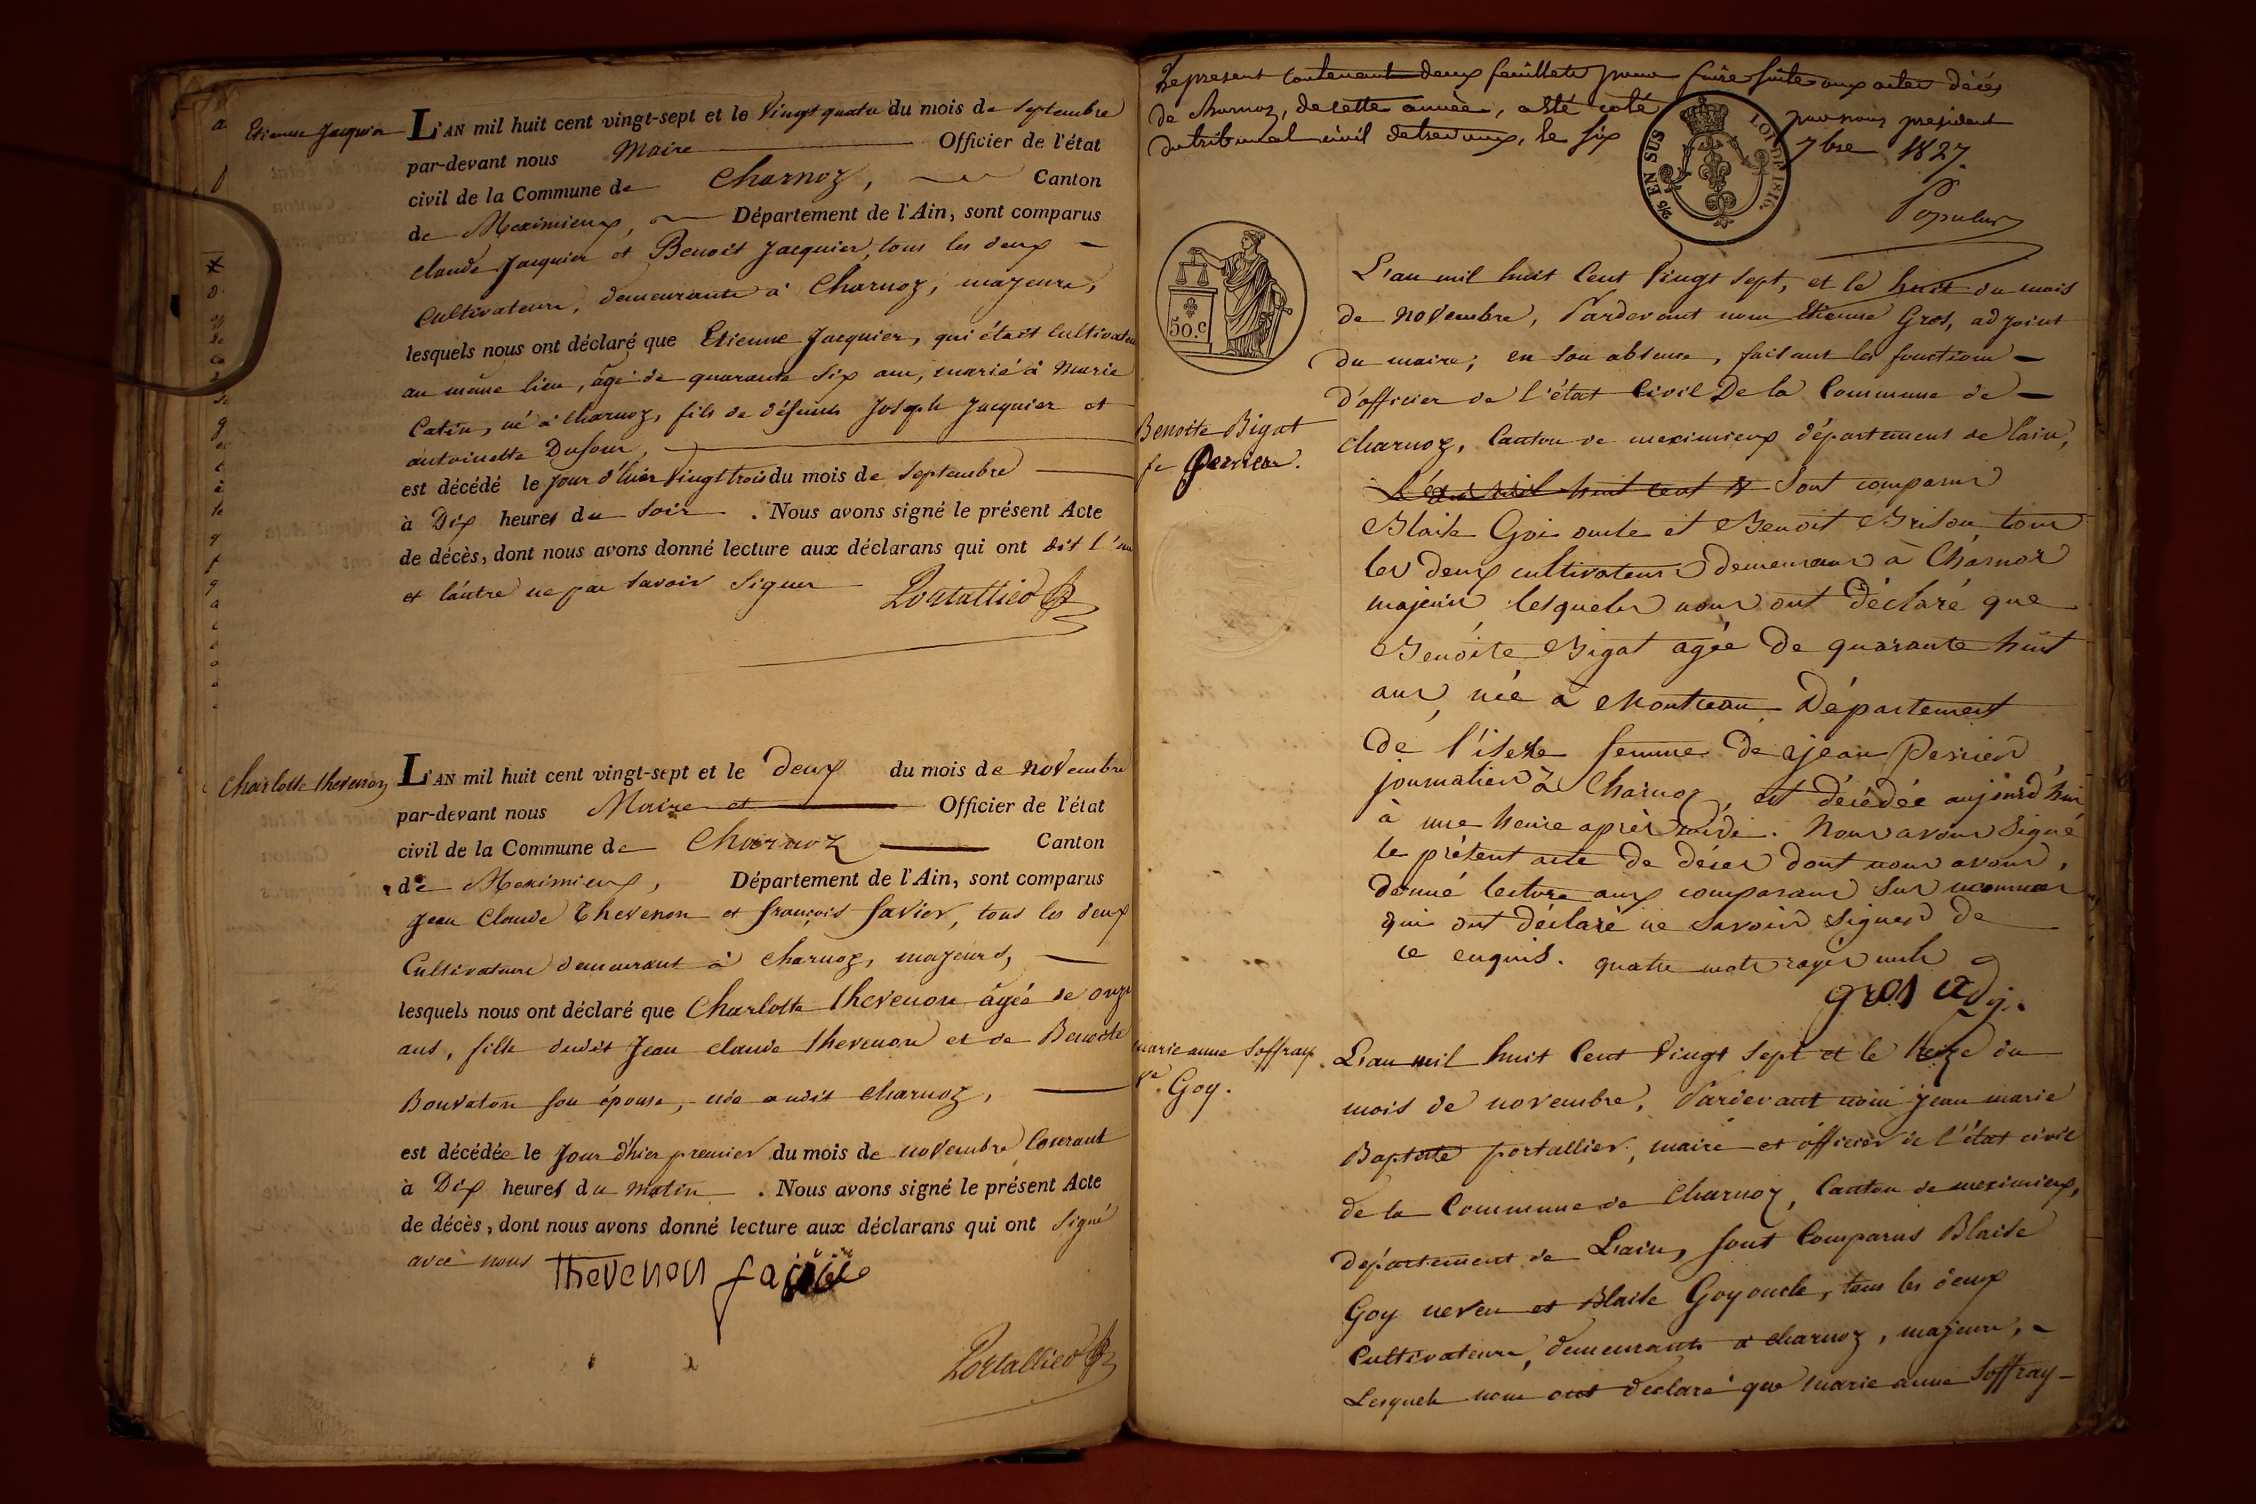 Etienne Jacquier
L'AN mil huit cent vingt-sept et le Vingt quatre du mois de Septembre
par-devant nous Maire Officier de l'état
civil de la Commune de Charnoz, Canton
de Meximieux, Département de l'Ain, sont comparus
Claude Jacquier et Benoit Jacquier, tous les deux
Cultivateurs, demeurants à Charnoz, majeurs,
lesquels nous ont déclaré que Etienne Jacquier, qui était Cultivateur
au même lieu, âgé de quarante six ans, marié à Marie
Catin, né à Charnoz, fils de défunts Joseph Jacquier et
antoinette Dufour,
est décédé le jour d'hier Vingt trois du mois de Septembre
à Dix heures du Soir. Nous avons signé le présent Acte
de décès, dont nous avons donné lecture aux déclarans qui ont dit l'un
et l'autre ne pas savoir signer
Portallier
Charlotte thevenon
L'AN mil huit cent vingt-sept et le Deux du mois de Novembre
par-devant nous Maire et Officier de l'état
civil de la Commune de Charnoz Canton
de Meximieux, Département de l'Ain, sont comparus
Jean Claude Thevenon et françois favier, tous les deux
Cultivateurs demeurant à Charnoz, majeurs,
lesquels nous ont déclaré que Charlotte thevenon âgée de onze
ans, fille dudit Jean Claude thevenon et de Benoite
Bouvaton son épouse, née audit Charnoz,
est décédée le Jour d'hier premier du mois de novembre Courant
à Dix heures du matin. Nous avons signé le présent Acte
de décès, dont nous avons donné lecture aux déclarans qui ont Signé
avec nous Thevenon
Portallier
Le present contenant deux feuillets pour faire suite aux actes décès
de Charnoz, de cette année, a été coté par nous président
du tribunal civil de trevoux, le six 7bre 1827.
EN SUS
LOI DE 1816.
50.C
L'an mil huit Cent Vingt sept, et le huit du mois
de Novembre, Pardevant nous Etienne Gros, adjoint
du maire, en son absence, faisant les fonctions
d'officier de l'état Civil De la Commune de
Benoite Bigat
fe Perrier.
Charnoz, Canton de meximieux département de l'ain,
L'an mil huit cent Sont comparus
Blaise Goi oncle et Benoit Brison tous
les deux cultivateurs demeurans à Charnoz
majeurs lesquels nous ont déclaré que
Benoite Bigat agée de quarante huit
ans, née à Département
de l'isere femme de jean Perrier
journalier à Charnoz, est décédée aujourd'hui
à une heure après midi. Nous avons signé
le présent acte de décès dont nous avons
donné lecture aux comparans sus nommés
qui ont déclaré ne savoir signer de
ce enquis. quatre mots rayés nuls
gros adj.
marie anne Soffray
Ve. Goy.
L'an mil huit Cent Vingt Sept et le treize du
mois de novembre, Pardevant nous jean marie
Baptiste portallier, maire et officier de l'état civil
de la Commune de Charnoz, Canton de meximieux,
département de L'ain, sont Comparus Blaise
Goy neveu et Blaise Goy oncle, tous les deux
Cultivateurs, demeurants à Charnoz, majeurs,
Lesquels nous ont déclaré que marie anne Soffray